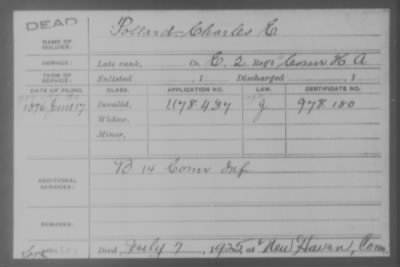 DEAD
NAME OF SOLDIER:
Pollard Charles E
SERVICE: Late rank, Co. E, 2 Reg't Conn H A
TERM OF SERVICE: Enlisted , 1 Discharged , 1
DATE OF FILING. CLASS. APPLICATION NO. LAW. CERTIFICATE NO.
1896 June 17 Invalid, 1178437 g 978.180
Widow,
Minor,
ADDITIONAL SERVICES:
B 14 Conn Inf
REMARKS:
Died July 7, 1925, at New Haven, Conn.